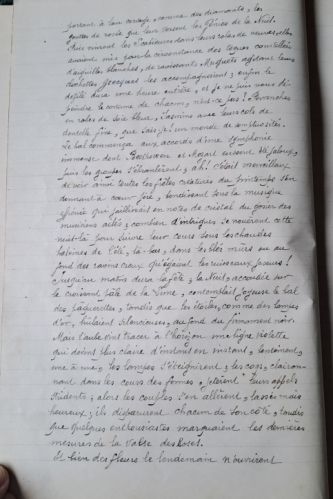 portant à leur corsage, comme des diamants, les
gouttes de rosée que leur versent les Génies de la Nuit.
Puis vinrent les dans leurs robes de
avaient mis pour la circonstance des toques constellées
d'aiguilles blanches, de ravissants Muguets agitant leurs
clochettes les accompagnaient ; enfin le
défilé dura une heure entière, et je ne puis vous dé-
peindre le costume de chacun, n'est-ce pas ! Pervenches
en robes de soie bleue, Jasmins avec leurs cols de
dentelle fine, que sais-je, un monde de somptuosités.
Le bal commença aux accords d'une symphonie
immense dont Beethoven et Mozart eussent été jaloux,
puis les groupes s'ébranlèrent, ah ! c'était merveilleux
de voir ainsi toutes les frêles créatures du Printemps s'en
donnant à cœur-joie, tourbillonnant sous la musique
qui jaillissait en notes de cristal du gosier des
musiciens ailés ; combien d'intrigues se nouèrent cette
nuit-là pour suivre leur cours sous les chaudes
haleines de l'été, là-bas, dans les blés mûrs ou au
fond des ravins creux qu'égaient les ruisseaux jaseurs !
Jusqu'au matin dura la fête, la Nuit, accoudée sur
le croissant pâle de la Lune, contemplait joyeuse le bal
des pâquerettes, tandis que les étoiles, comme des lampes
d'or, brûlaient silencieuses, au fond du firmament noir.
Mais l'aube vint tracer à l'horizon une ligne violette
qui devint plus claire d'instant en instant, lentement,
une à une, les lampes s'éteignirent, les coqs, claironnant
dans les cours des fermes, jetèrent leurs appels
stridents ; alors les couples s'en allèrent, lassés mais
heureux ; ils disparurent chacun de son côté, tandis
que quelques enthousiastes marquaient les dernières
mesures de la Valse des Roses.
Et bien des fleurs le lendemain n'ouvrirent